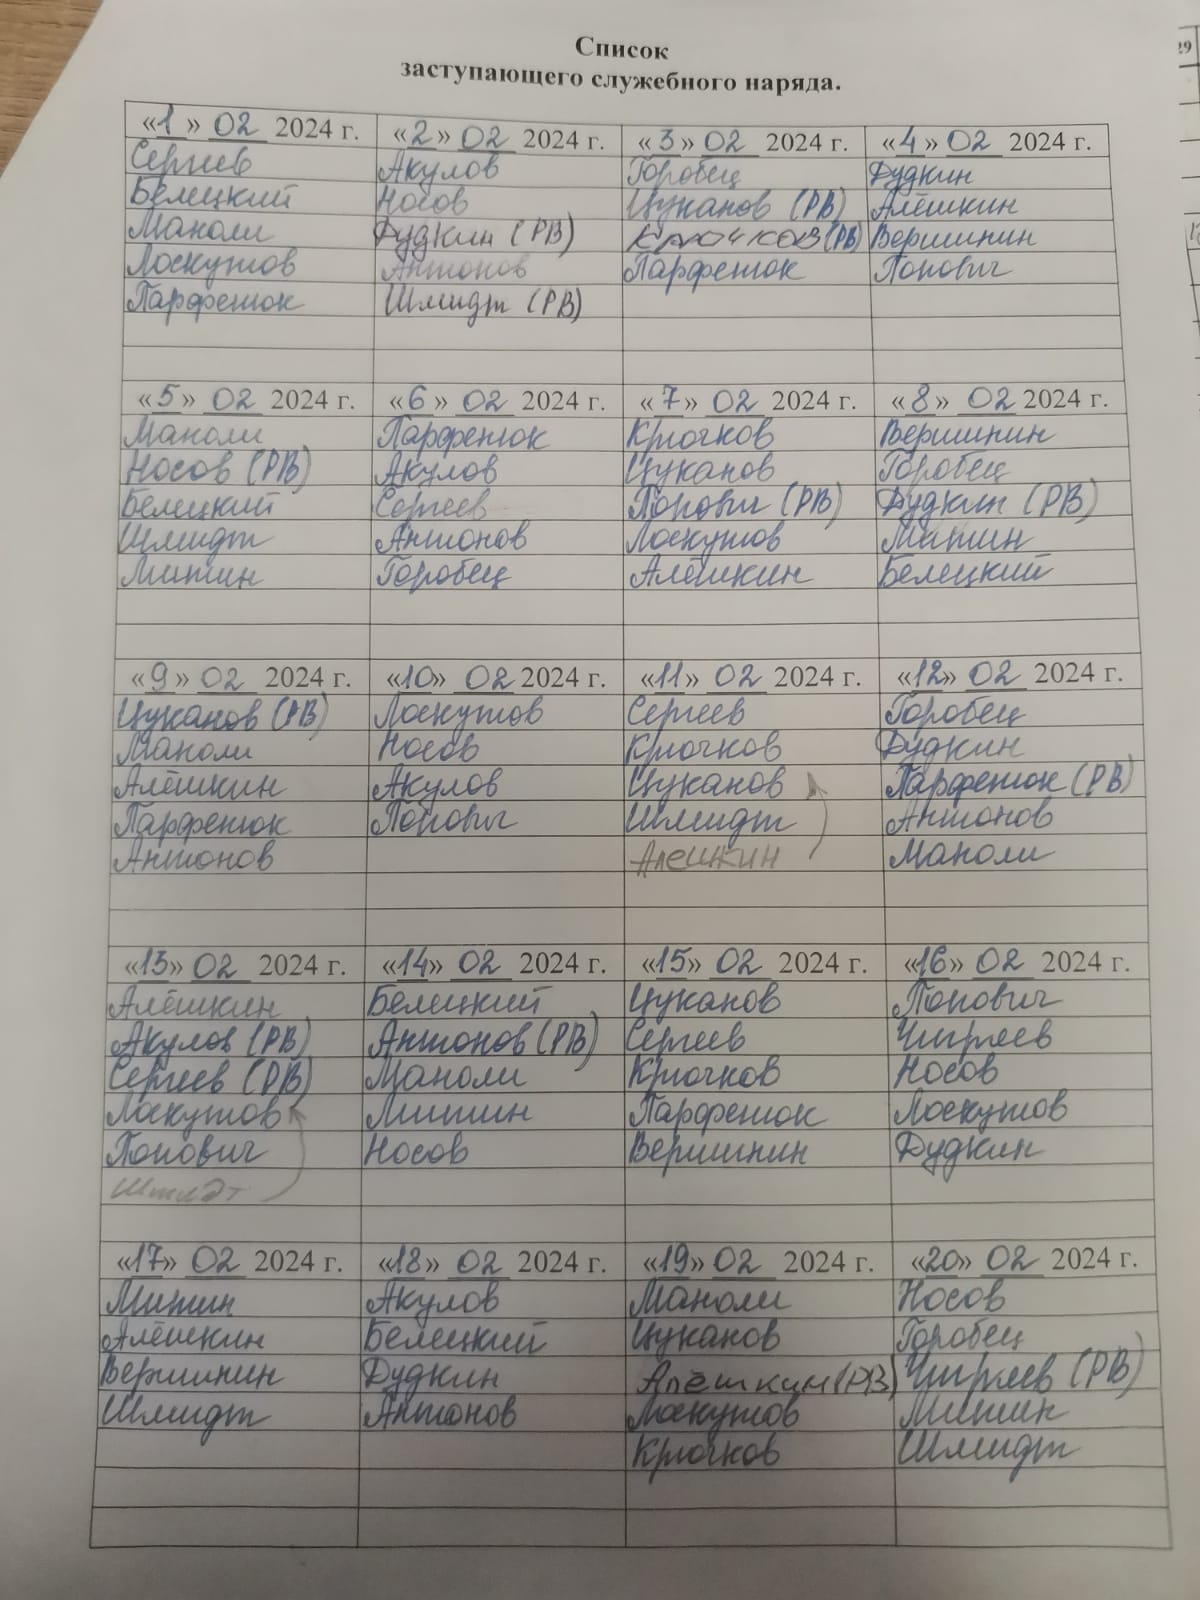 Список
заступающего служебного наряда.
«1» 02 2024 г. «2» 02 2024 г. «3» 02 2024 г. «4» 02 2024 г.
Сергеев Акулов Горобец Дудкин
Белецкий Носов Цуканов (РВ) Алёшкин
Маноли Дудкин (РВ) Крючков (РВ) Вершинин
Лоскутов Антонов Парфенюк Попович
Парфенюк Шмидт (РВ)
«5» 02 2024 г. «6» 02 2024 г. «7» 02 2024 г. «8» 02 2024 г.
Маноли Парфенюк Крючков Вершинин
Носов (РВ) Акулов Цуканов Горобец
Белецкий Сергеев Попович (РВ) Дудкин (РВ)
Шмидт Антонов Лоскутов Митин
Митин Горобец Алёшкин Белецкий
«9» 02 2024 г. «10» 02 2024 г. «11» 02 2024 г. «12» 02 2024 г.
Цуканов (РВ) Лоскутов Сергеев Горобец
Маноли Носов Крючков Дудкин
Алёшкин Акулов Цуканов Парфенюк (РВ)
Парфенюк Попович Шмидт Антонов
Антонов Алешкин Маноли
«13» 02 2024 г. «14» 02 2024 г. «15» 02 2024 г. «16» 02 2024 г.
Алёшкин Белецкий Цуканов Попович
Акулов (РВ) Антонов (РВ) Сергеев Чигряев
Сергеев (РВ) Маноли Крючков Носов
Лоскутов Митин Парфенюк Лоскутов
Попович Носов Вершинин Дудкин
«17» 02 2024 г. «18» 02 2024 г. «19» 02 2024 г. «20» 02 2024 г.
Митин Акулов Маноли Носов
Алёшкин Белецкий Цуканов Горобец
Вершинин Дудкин Алёшкин (РВ) Чигряев (РВ)
Шмидт Антонов Лоскутов Митин
Крючков Шмидт